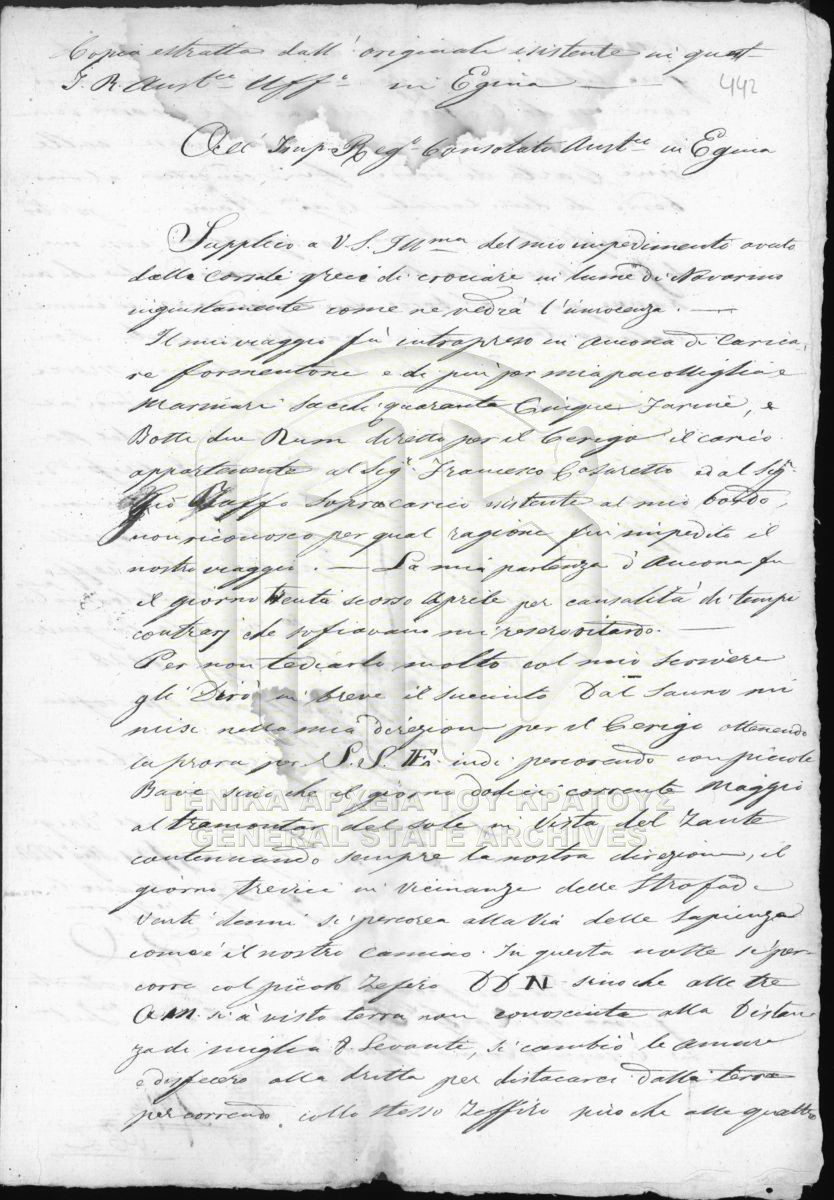 Copia estratta dall' originale esistente in quest
I. R. Aust.co Uff.o in Egina
442
All' Imp. Reg.o Consolato Aust.co in Egina
Supplico a V. S. Ill.ma del mio impedimento avuto
dalle corsale greci di crociare in lume di Navarino
ingiustamente come ne vedrà l'innocenza. —
Il mio viaggio fù intrapreso in Ancona di carica
re formentone e di piui per mia pacottiglia e
Marinari sacchi quaranta Cinque Farine, e
Botti due Rum diretto per il Cerigo il carico
appartenente al Sig.r Francesco Casaretto ed al Sig.r
Giò Soprocarico esistente al mio bordo,
non riconosco per qual ragione fui impedito il
nostro viaggio. — La mia partenza d'Ancona fu
il giorno trenta scorso Aprile per causalità di tempi
contrarj che sofiavano mi reservo tardo. —
Per non tediarlo molto col mio scrivere
gli Dirò in breve il succinto Dal Sauro mi
misi nella mia direzione per il Cerigo ottenendo
la prora per S. S. E. indi percorendo con piccole
Bave sino che il giorno dodici corrente Maggio
al tramontar del sole in Vista del Zante
contenuando sempre la nostra direzione, il
giorno tredici in vicinanze delle Strofade
Venti deuni si percorea alla Via delle Sapienza
come è il nostro camino. In questa notte si per-
corre col picolo Zefiro DDN sino che alle tre
A.M. si à visto terra non conosciuta alla Distan
za di miglia 8 Levante, si cambiò le amure
e dissecero alla dritta per distacarci dalla terra
percorrendo collo stesso Zeffiro sino che alle quattro
ΓΕΝΙΚΑ ΑΡΧΕΙΑ ΤΟΥ ΚΡΑΤΟΥΣ
GENERAL STATE ARCHIVES